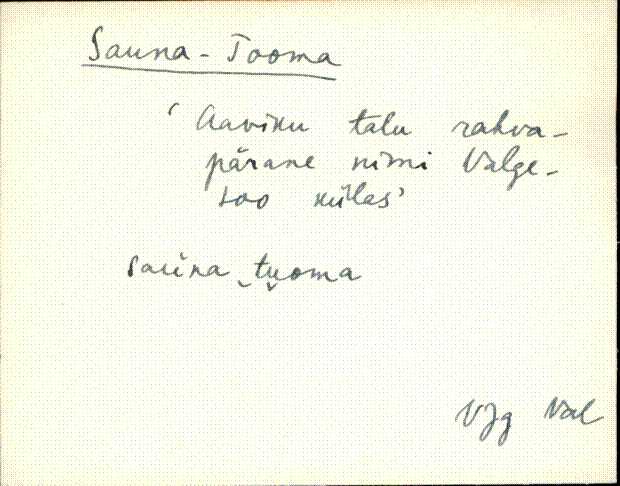 Sauna-Tooma
‘Aaviku talu rahva-
pärane nimi Valge-
soo külas’
sauna‿tu̯oma
VJg Val